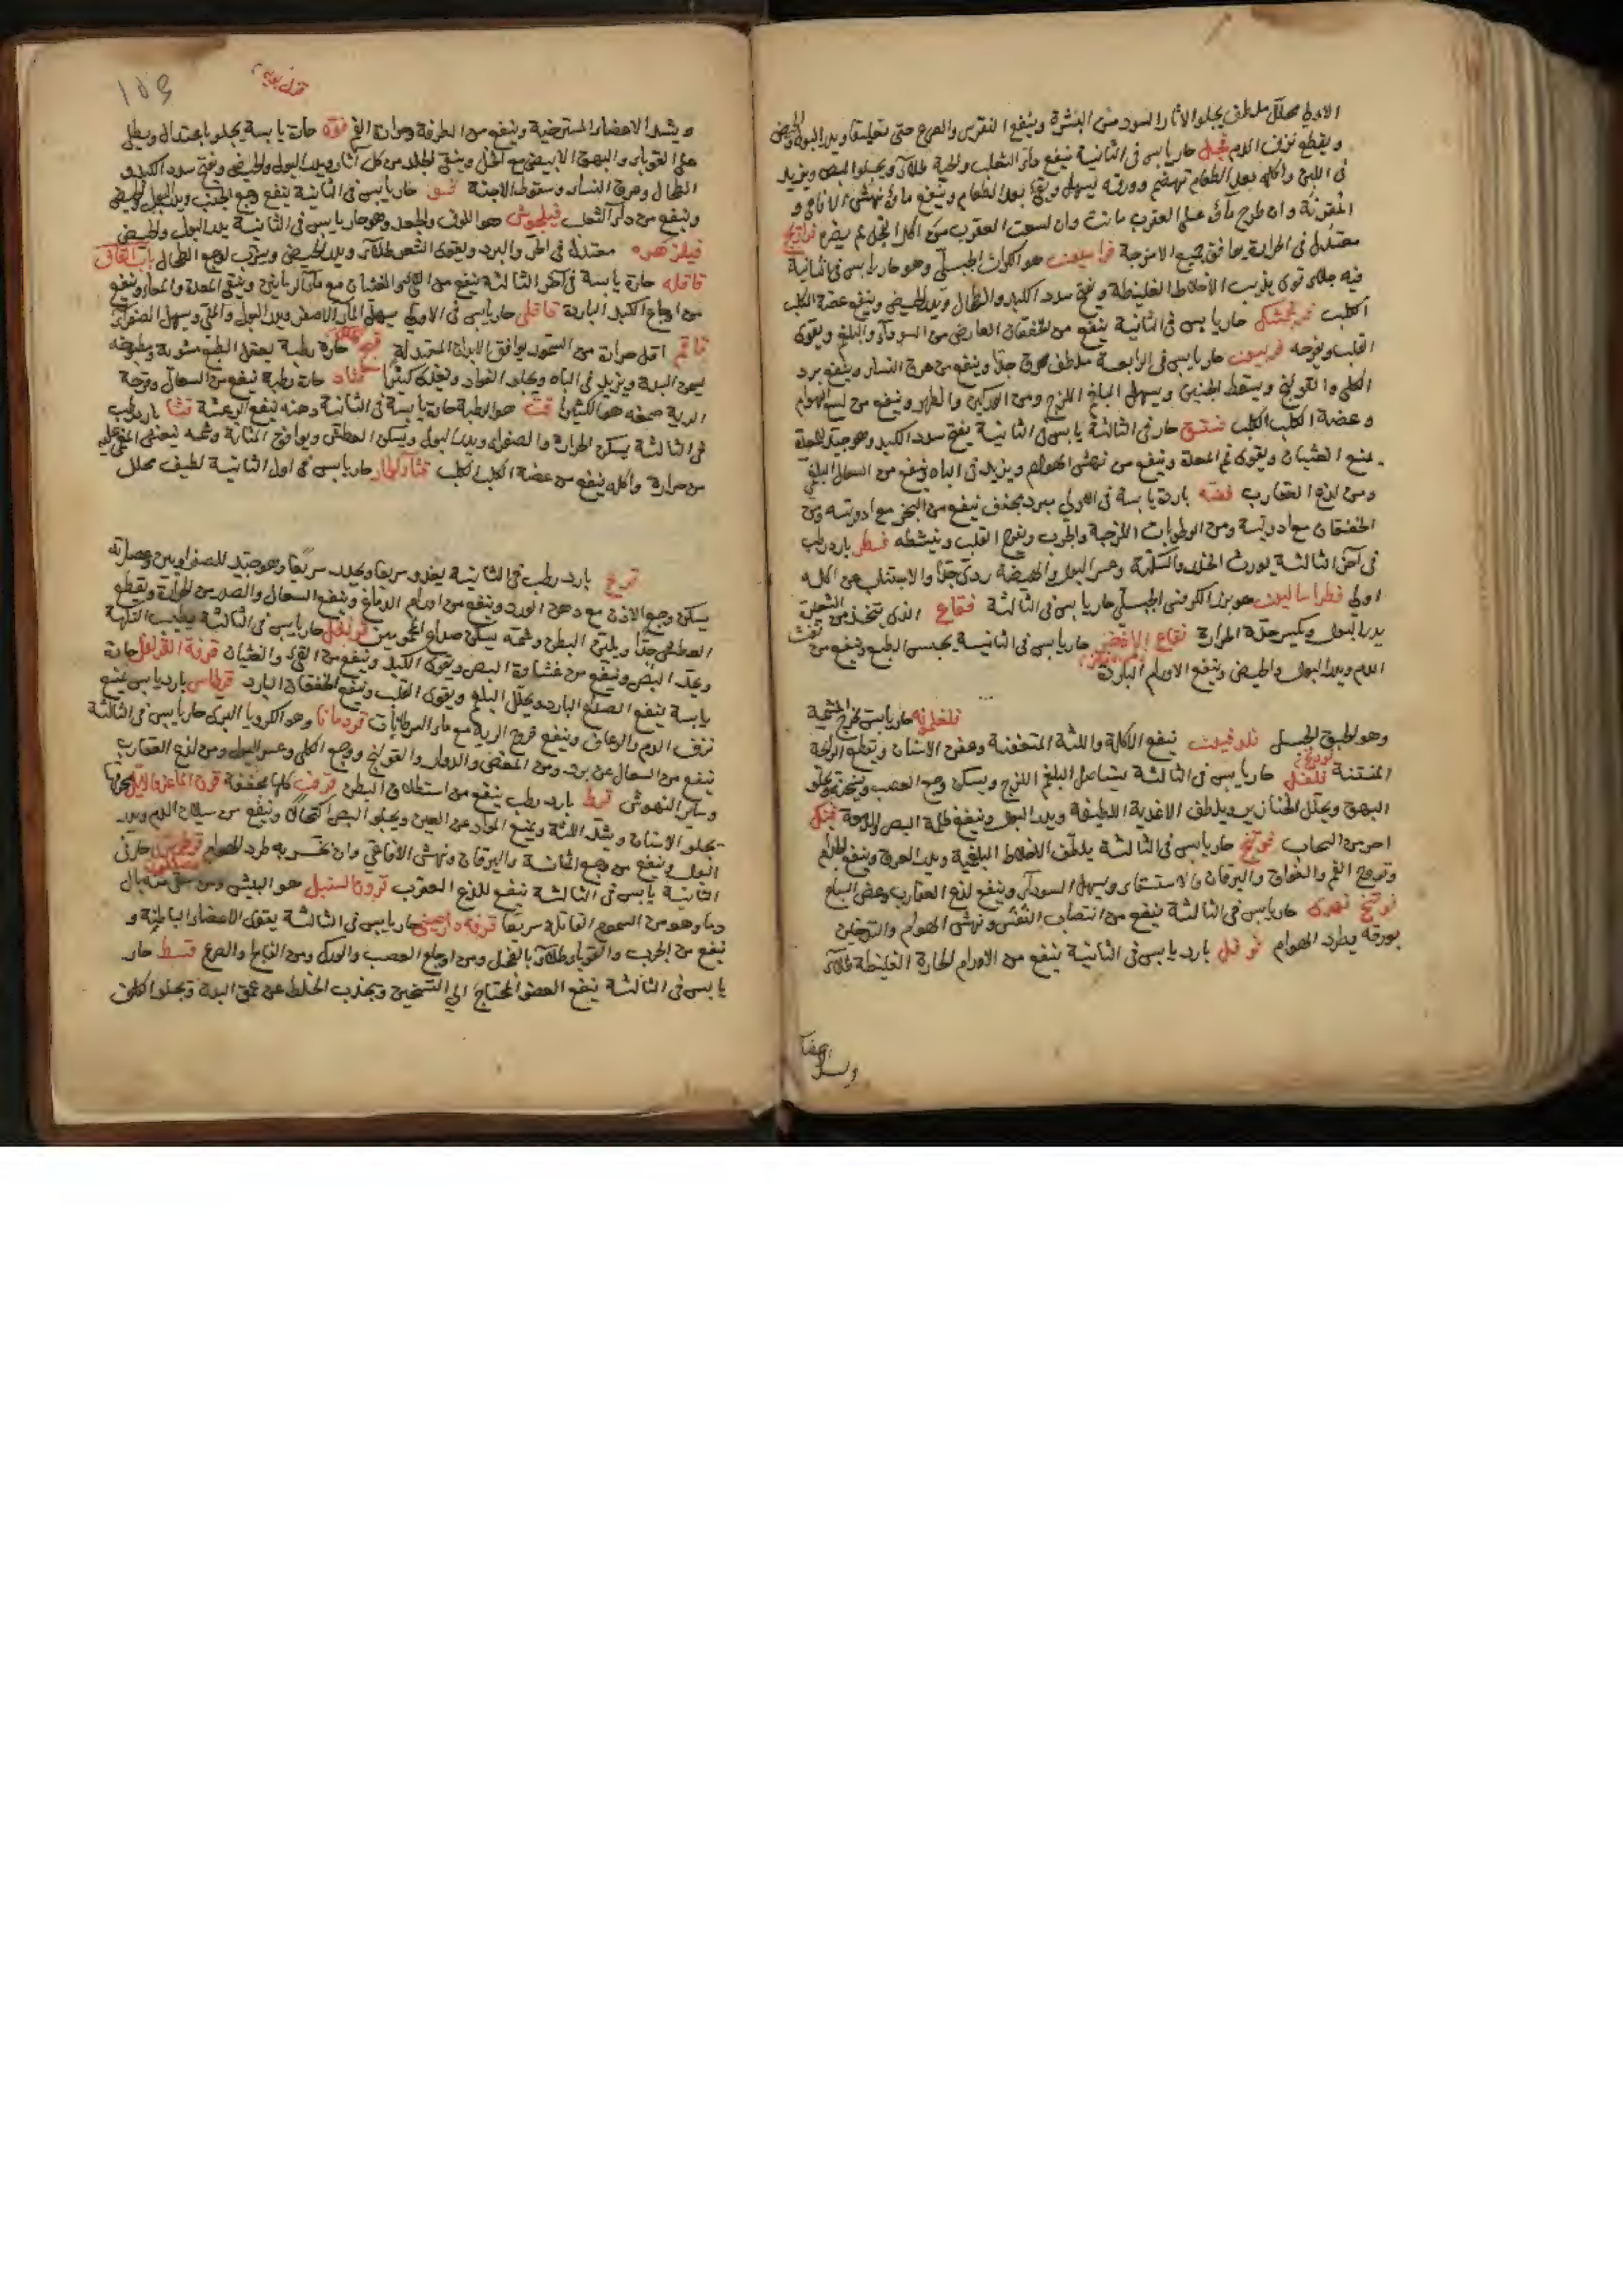 الاولى محلل ملطف يجلو الآثار السود من البشرة وينفع النقرس والصرع حتى تعليقا ويدر البول والحيض
ويقطع نزف الدم فجل حار يابس فى الثانية ينفع داء الثعلب والحية طلاء ويجلو البصر ويزيد
فى اللبن واكله بعد الطعام يهضم وورقه يسهل بعد الطعام وينفع ماؤه نهش الافاعى و
المقرنة وان طرح ماؤه على العقرب ماتت وان لسعت العقرب من اكل الفجل لم يضره فراريج
معتدل فى الحرارة يوافق جميع الامزجة فراسيون هو الكراث الجبلى وهو حار يابس فى الثانية
فيه جلاء قوى يذيب الاخلاط الغليظة ويفتح سدد الكبد والطحال ويدر الحيض وينفع عضة الكلب
الكلب فرنجمشك حار يابس فى الثانية ينفع من الخفقان العارض من السوداء والبلغم ويقوى
القلب ويفرحه فربيون حار يابس فى الرابعة ملطف محرق جدا وينفع من عرق النساء وينفع برد
الكلى والقولنج ويسقط الجنين ويسهل البلغم اللزج ومن الوركين والظهر وينفع من لسع الهوام
وعضة الكلب الكلب فستق حار فى الثالثة يابس فى الثانية يفتح سدد الكبد وهو جيد للمعدة
يمنع الغثيان ويقوى فم المعدة وينفع من نهش الهوام ويزيد فى الباه وينفع من السعال البلغمى
ومن لذع العقارب فضة باردة يابسة فى الاولى يبرد يجفف ينفع من البخر مع ادويته ومن
الخفقان مع ادويته ومن الرطوبات اللزجة والجرب ويفرح القلب وينشطه فطر بارد رطب
فى آخر الثالثة يورث الخدر والسكتة وعسر البول والهيضة ردى جدا والاجتناب عن اكله
اولى فطراساليون هو بزر الكرفس الجبلى حار يابس فى الثالثة فقاع الذى يتخذ من الشعير
يدر البول ويكسر حدة الحرارة فقاح الاذخر حار يابس فى الثانية يحبس الطبع وينفع من نفث
الدم ويدر البول والحيض وينفع الاورام الباردة
فلغلمونه حار يابس يخرج المشيمة
وهو الحبق الجبل فلدفيون ينفع الآكلة واللثة المتعفنة وعفن الاسنان ويقطع الرائحة
المنتنة فلفل حار يابس فى الثالثة يستاصل البلغم اللزج ويسكن وجع العصب ويسخنه ويجلو
البهق ويحلل الخنازير ويلطف الاغذية اللطيفة ويدر البول وينفع ظلمة البصر
حار يابس فى الثالثة يلطف الاخلاط البلغمية ويدر العرق وينفع الجذام
وقروح الفم والفواق واليرقان والاستسقاء ويسهل السوداء وينفع لذع العقارب وعض السباع
فوتنج نهرى حار يابس فى الثالثة ينفع من انتصاب النفس ونهش الهوام والتدخين
بورقه يطرد الهوام فوفل بارد يابس فى الثانية ينفع من الاورام الحارة الغليظة طلاء
ويشد
ويشد الاعضاء المسترخية وينفع من الطرفة وحرارة الفم فوة حارة يابسة يجلو باعتدال ويطلى
على القوباء والبهق الابيض مع الخل وينقى الجلد من كل آثار ويدر البول والحيض ويفتح سدد الكبد و
الطحال وعرق النساء وسقوط الاجنة حار يابس فى الثانية ينفع وجع الجنب ويدر البول والحيض
وينفع من داء الثعلب فيلجوش هو اللوف والجعد وهو حار يابس فى الثانية يدر البول والحيض
فيلزهره معتدلة فى الحر والبرد ويقوى الشعر طلاء ويدر الحيض ويشرب لوجع الطحال باب القاف
قاقله حارة يابسة فى آخر الثالثة ينفع من القئ والغشيان مع ماء الرمانين وينقى المعدة والمعاء وينفع
من اوجاع الكبد الباردة قاقلى حار يابس فى الاولى يسهل الماء الاصفر ويدر البول والمنى ويسهل الصفراء
قاقم اقل حرارة من السمور يوافق الابدان المعتدلة قبج حارة رطبة يعقل البطن مشوية ومطبوخه
يسمن البدن ويزيد فى الباه ويجلو الفؤاد ويغذى كثيرا حارة رطبة ينفع من السعال وقرحة
الرية صمغه هو الكثيرا قت هو الرطبة حارة يابسة فى الثانية دهنه ينفع الرعشة قثا بارد رطب
فى الثالثة يسكن الحرارة والصفراء ويدر البول ويسكن العطش ويوافق المثانة وشمه ينعش المغمى عليه
من حرارة واكله ينفع من عضة الكلب الكلب قثاء الحمار حار يابس فى اول الثانية لطيف محلل
قرع بارد رطب فى الثانية يغذو سريعا وينحدر سريعا وهو جيد للصفراويين وعصارته
يسكن وجع الاذن مع دهن الورد وينفع من اورام الدماغ وينفع السعال والصدر من الحرارة ويقطع
العطش جدا ويلين البطن وشمه يسكن صداع المحمومين قرنفل حار يابس فى الثالثة يطيب النكهة
ويحد البصر وينفع من غشاوة البصر ويقوى الكبد وينفع من القئ والغثيان قرفة القرنفل حارة
يابسة ينفع الصداع البارد ويحلل البلغم ويقوى القلب وينفع الخفقان البارد قرطاس بارد يابس يمنع
نزف الدم والرعاف وينفع قروح الرية مع ماء السرطانات قردمانا وهو الكرويا البرى حار يابس فى الثالثة
ينفع من السعال عن برد ومن المغص والدوار والقولنج ووجع الكلى وعسر البول ومن لذع العقارب
وساير النهوش قرط بارد رطب ينفع من استطلاق البطن كلها مجففة قرن الماعز والايل محرقا
يجلو الاسنان ويشد اللثة ويمنع المواد عن العين ويجلو البصر اكتحالا وينفع من سيلان الدم ويدر
البول وينفع من وجع المثانة واليرقان ونهش الافاعى وان تبخر به طرد الهوام حار فى
الثانية يابس فى الثالثة ينفع للذع العقرب قرون السنبل هو البيش ومن سقى منه بال
دما وهو من السموم القاتلة سريعا قرفه دارصينى حار يابس فى الثالثة يقوى الاعضاء الباطنة و
ينفع من الجرب والقوباء طلاء بالخل ومن اوجاع العصب والورك ومن الفالج والصرع قسط حار
يابس فى الثالثة ينفع العضو المحتاج الى التسخين ويجذب الخلط عن عمق البدن ويجلو الكلف